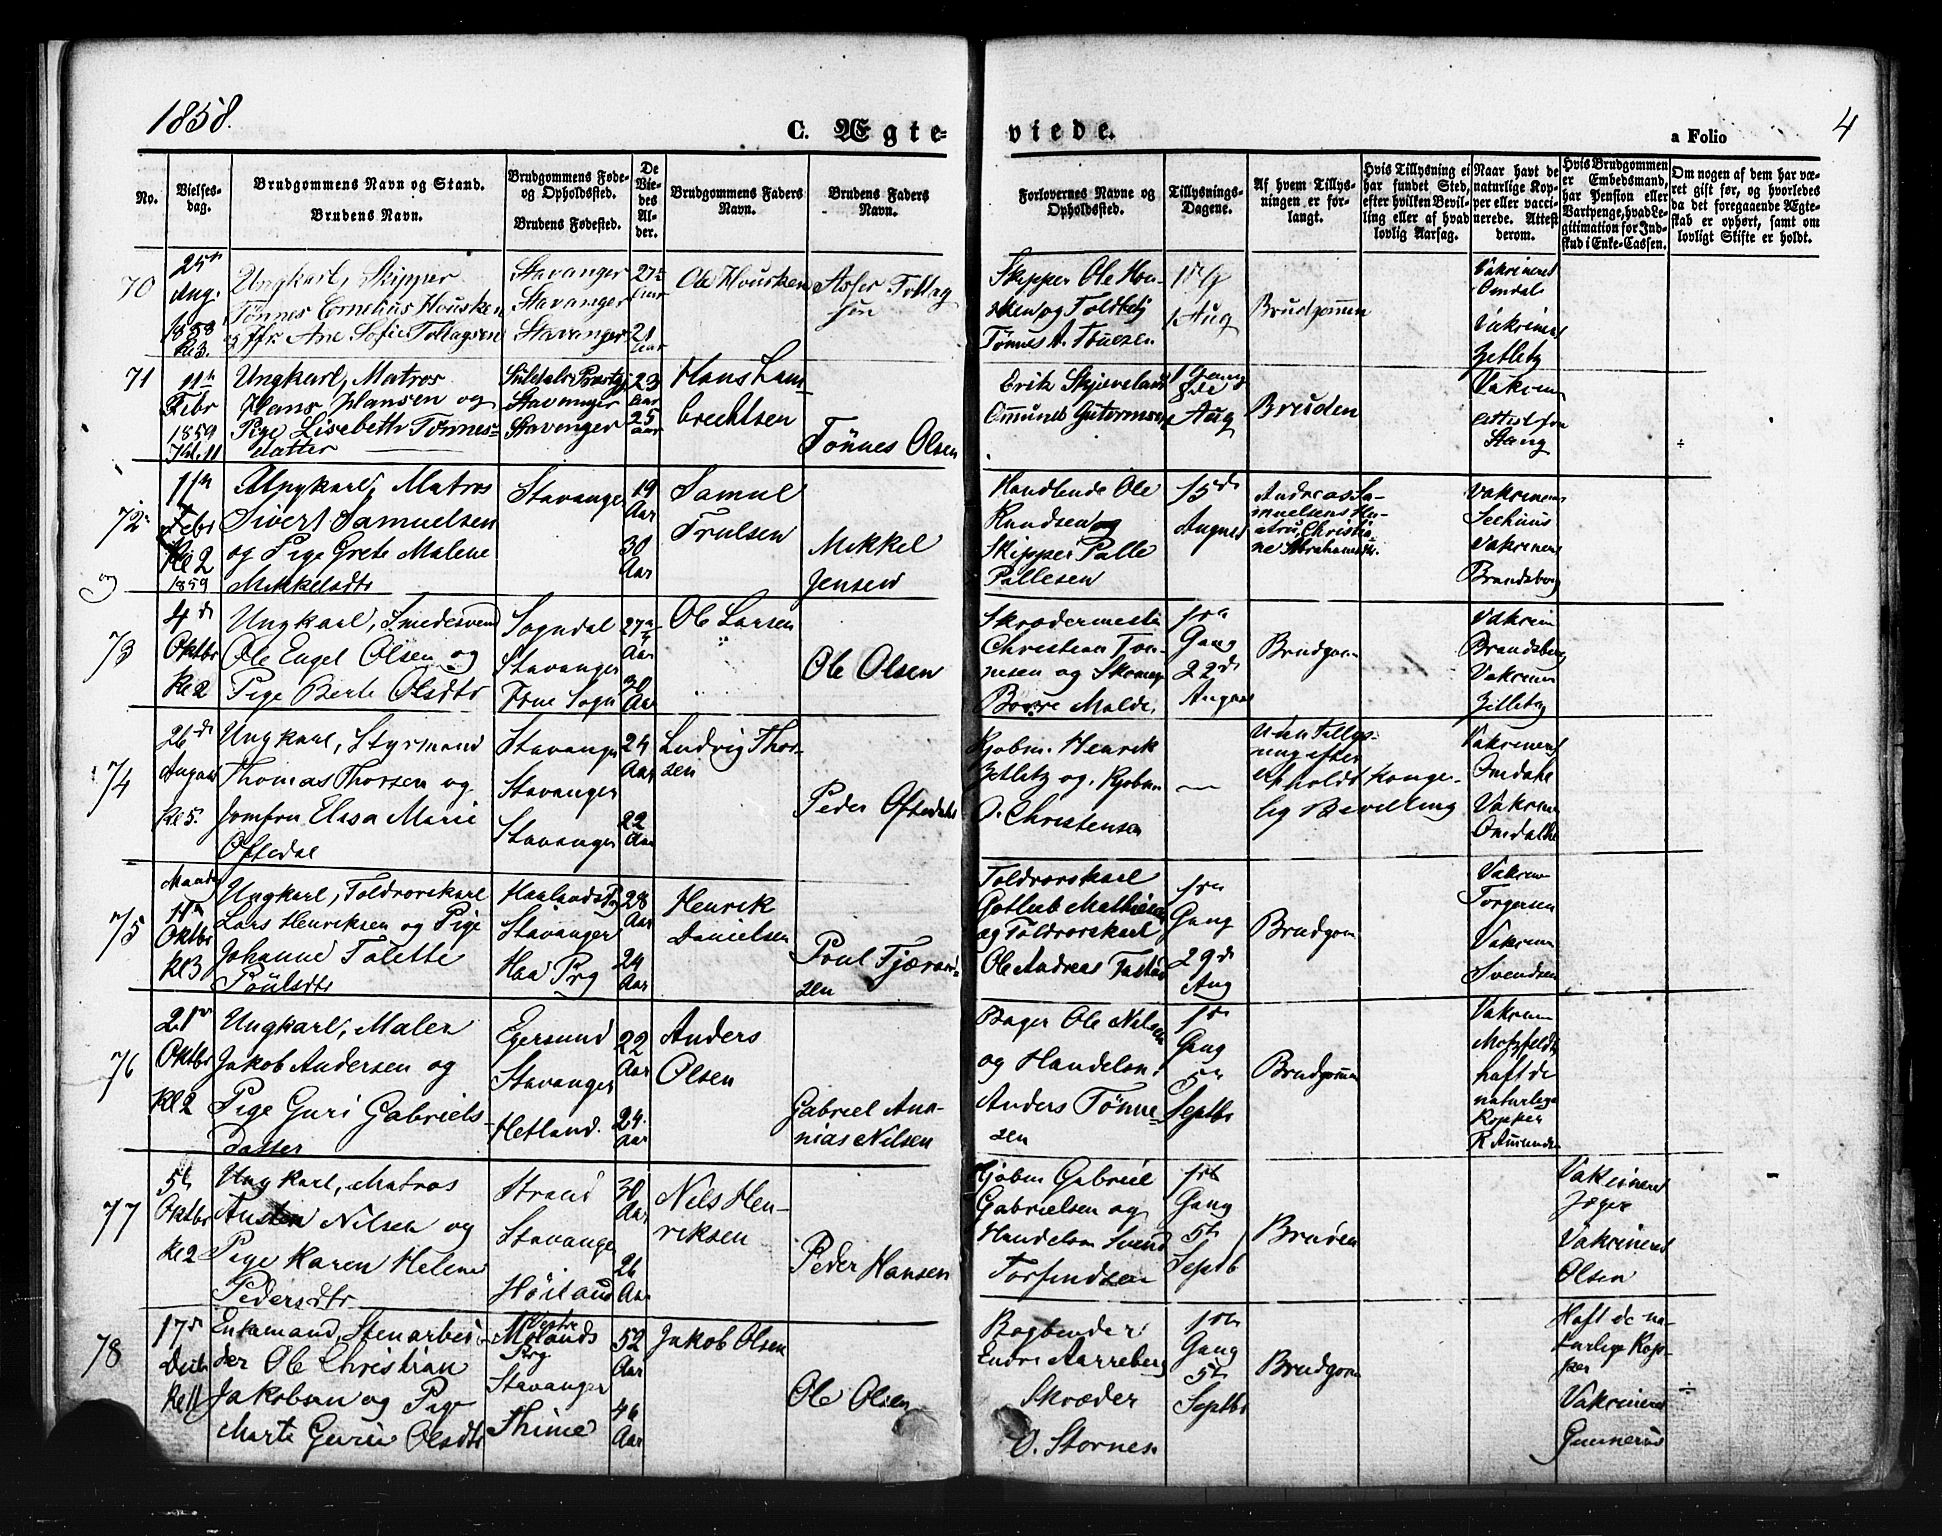 1858.
C. Ægte-
viede.
a Folio
4
No.
Vielses-
dag.
Brudgommens Navn og Stand.
Brudens Navn.
Brudgommens Føde-
og Opholdssted.
Brudens Fødested.
De
Vie-
des
Al-
der.
Brudgommens Faders
Navn.
Brudens Faders
Navn.
Forlovernes Navne og
Opholdssted.
Tillysnings-
Dagene.
Af hvem Tillys-
ningen er for-
langt.
Hvis Tillysning ei
har fundet Sted,
efter hvilken Bevil-
ling eller af hvad
lovlig Aarsag.
Naar havt de
naturlige Kop-
per eller vacci-
nerede. Attest
derom.
Hvis Brudgommen
er Embedsmand,
har Pension eller
Vartpenge, hvad Le-
gitimation for Ind-
skud i Enke-Cassen.
Om nogen af dem har væ-
ret gift før, og hvorledes
da det foregaaende Ægte-
skab er ophørt, samt om
lovligt Skifte er holdt.
70
25
Aug.
1858
Kl 3.
Ungkarl, Skipper
Tønnes Cornelius Housken
og Jfr. Ane Sofie Tollagsen
Stavanger
Stavanger
Stavanger
27
21
Ole Housken
Tollag
sen
Skipper Ole Hou-
sken og
Tønnes A.
Aug
Brudgommen
Vakcineret
Omdal
Vakcineret
Zetlitz
71
11
Febr
1859
Kl. 11
Ungkarl, Matros
Hans Hansen og
Pige Lisebeth Tønnes-
datter
Stavanger
Stavanger
23
Aar
25
Aar
Hans Lam-
brechtsen
Tönnes Olsen
Erik Skjæveland
1 Gang
8de
Aug
Bruden
Vakcin
attest fra
Stang
÷
72
11
Febr
Kl 2
1859
Ungkarl, Matros
Sivert Samuelsen
og Pige Grete Malene
Mikkelsdtr
Stavanger
19
Aar
30
Aar
Samuel
Trulsen
Mikkel
Jensen
Handlende Ole
Knudsen og
Skipper Palle
Pallesen
15de
August
Andreas Sa-
muelsens Hu-
stru, Christia-
ne Abrahamsdtr.
Vakcineret
Seehuus
Vakcineret
Brandsberg
73
4de
Oktbr
Kl 2
Ungkarl, Smedesvend
Ole Engel Olsen og
Pige Berte Olsdtr
Sogndal
Stavanger
Frue Sogn
27
Aar
30
Aar
Ole Larsen
Ole Olsen
Skrædermester
Christian Ton-
nesen og
Børre Malde.
1ste
Gang
22de
August
Brudgom
Vakcin
Brandsberg
Vakcin
Zetlitz
74
26de
August
Kl 5.
Ungkarl, Styrmand
Thomas Thorsen og
Jomfru Elisa Marie
Oftedal
Stavanger
Stavanger
Stavanger
24
Aar
22
Aar
Ludvig Thor-
sen
Peder Oftedahl
Kjøbm. Henrik
Zetlitz og Kjøbm
O. Christensen
—
Uden Tillys-
ning efter
erholdt Konge-
lig Bevilling
Vakcineret
Omdahl
Vakcin
Omdahl
75
Mandag
11te
Oktbr
Kl 3
Ungkarl, Toldrorskarl
Lars Henriksen og Pige
Johanne Tolette
Poulsdtr
Haalands Prg
Stavanger
Haa Prg
28
Aar
24
Aar
Henrik
Danielsen
Poul Fjeran-
sen
Toldrorskarl
Gotlieb Mathiesen
og Toldrorskarl
Ole Andreas Tastad
1ste
Gang
29de
Aug
Brudgom
Vakcin
Torgersen
Vakcin
Svendsen
76
21
Oktbr
Kl 2
Ungkarl, Maler
Jakob Andersen og
Pige Guri Gabriels-
datter
Egersund
Stavanger
Hetland.
22
Aar
24.
Aar
Anders
Olsen
Gabriel Ana-
nias Nilsen
Bager Ole Nilsen
og Handelsm.
Anders Tønne-
sen
1ste
Gang
5te
Septbr
Brudgommen
Vakcin
Motzfeldt
haft de
naturlige
Kopper
R Amundsen
77
5te
Oktbr
Kl 2
Ungkarl, Matros
Austen Nilsen og
Pige Karen Helene
Pedersdtr
Strand
Stavanger
Höiland
30
Aar
26
Aar
Nils Hen-
riksen
Peder Hansen
Kjøbm Gabriel
Gabrielsen og
Handelsm Svend
Torfindsen
1ste
Gang
5te
Septb
Bruden
Vakcineret
Jæger
Vakcineret
Olsen
–
78
17de
Kl 11
Enkemand, Stenarbei-
der Ole Christian
Jakobsen og Pige
Marte Gurie Olsdtr
Vestre
Molands
Prg
Stavanger
Thime
52
Aar
46
Aar
Jakob Olsen
Ole Olsen
Bogbinder
Endre Aarreberg
Skræder
O. Stornes.
1ste
Gang
5te
Septbr
Brudgom
Haft de na-
turlige Kop-
per
Vakcineret
Gunnerus
÷